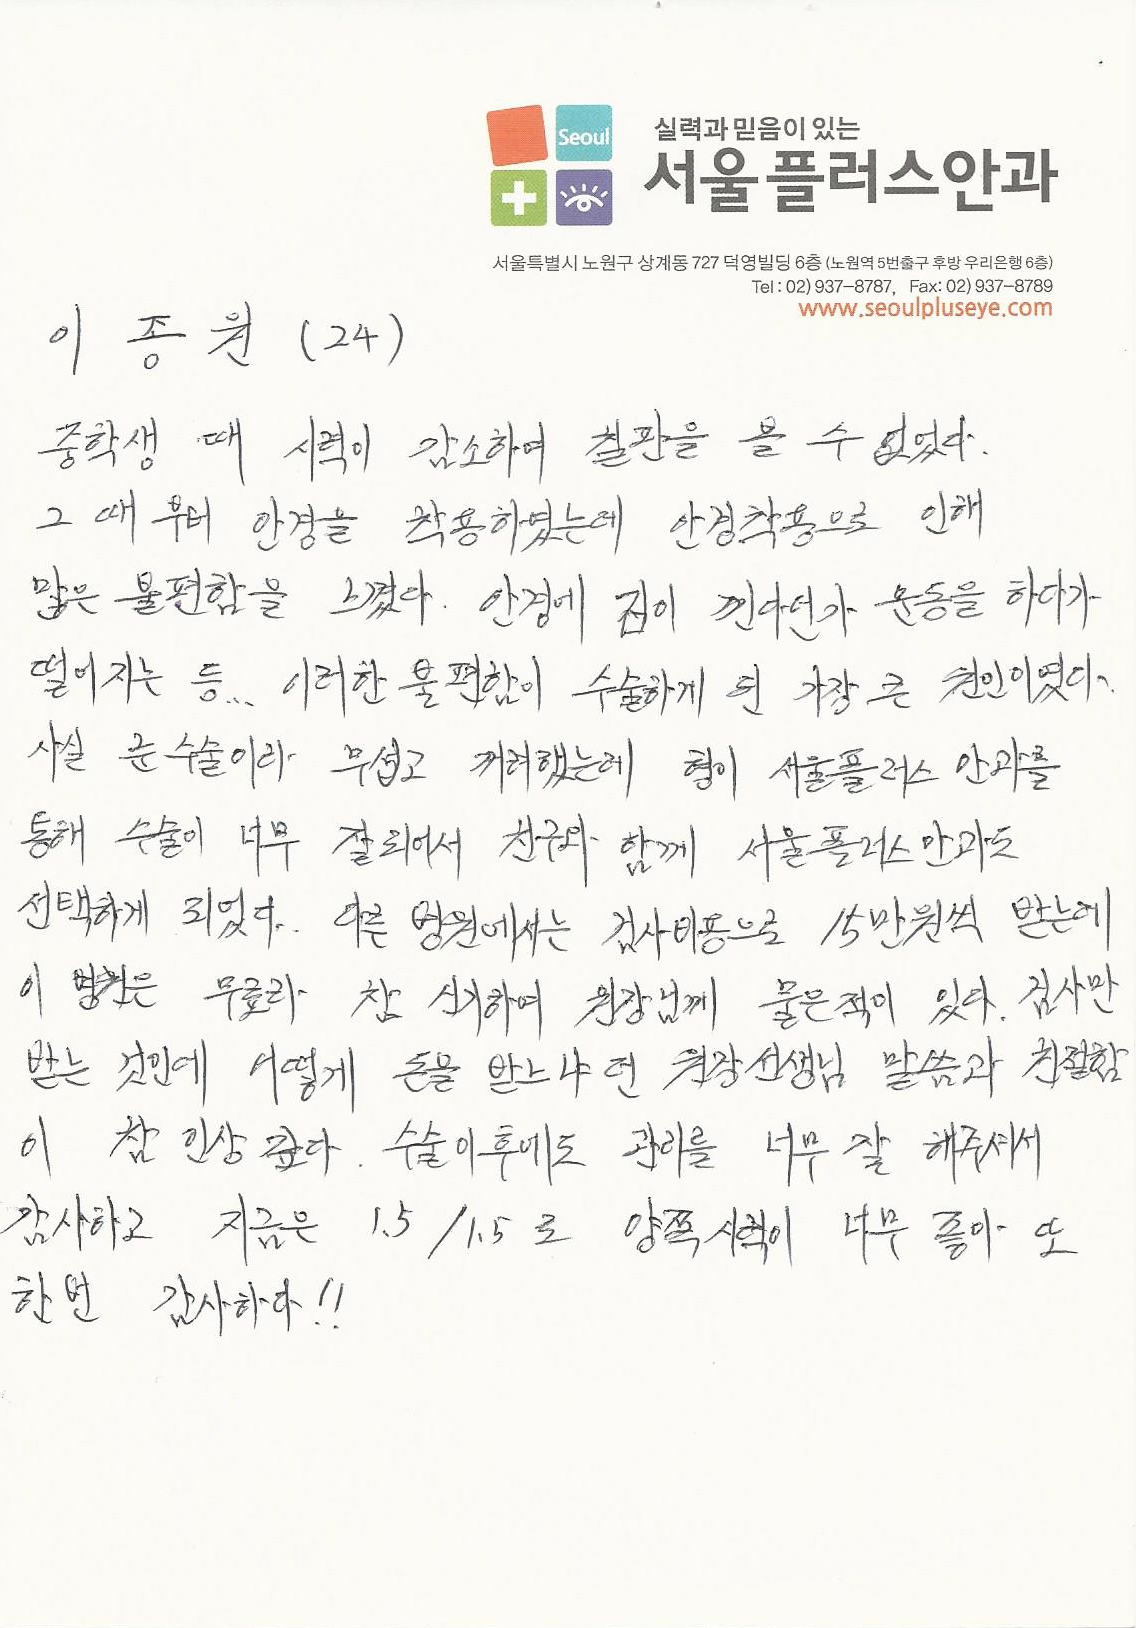 Seoul
실력과 믿음이 있는
서울플러스안과
서울특별시 노원구 상계동 727 덕영빌딩 6층 (노원역 5번출구 후방 우리은행 6층)
Tel : 02) 937-8787, Fax: 02) 937-8789
www.seoulpluseye.com
이 종 원 (24)
중학생 때 시력이 감소하여 칠판을 볼 수 없었다.
그 때 부터 안경을 착용하였는데 안경착용으로 인해
많은 불편함을 느꼈다. 안경에 김이 낀다던가 운동을 하다가
떨어지는 등... 이러한 불편함이 수술하게 된 가장 큰 원인이였다.
사실 눈수술이라 무섭고 꺼려했는데 형이 서울플러스 안과를
통해 수술이 너무 잘되어서 친구와 함께 서울플러스안과도
선택하게 되었다.. 다른 병원에서는 검사비용으로 15만원씩 받는데
이 병원은 무료라 참 신기하여 원장님께 물은적이 있다. 검사만
받는 것인데 어떻게 돈을 받느냐 던 원장선생님 말씀과 친절함
이 참 인상 깊다. 수술이후에도 관리를 너무 잘 해주셔서
감사하고 지금은 1.5 / 1.5 로 양쪽시력이 너무 좋아 또
한번 감사하다!!